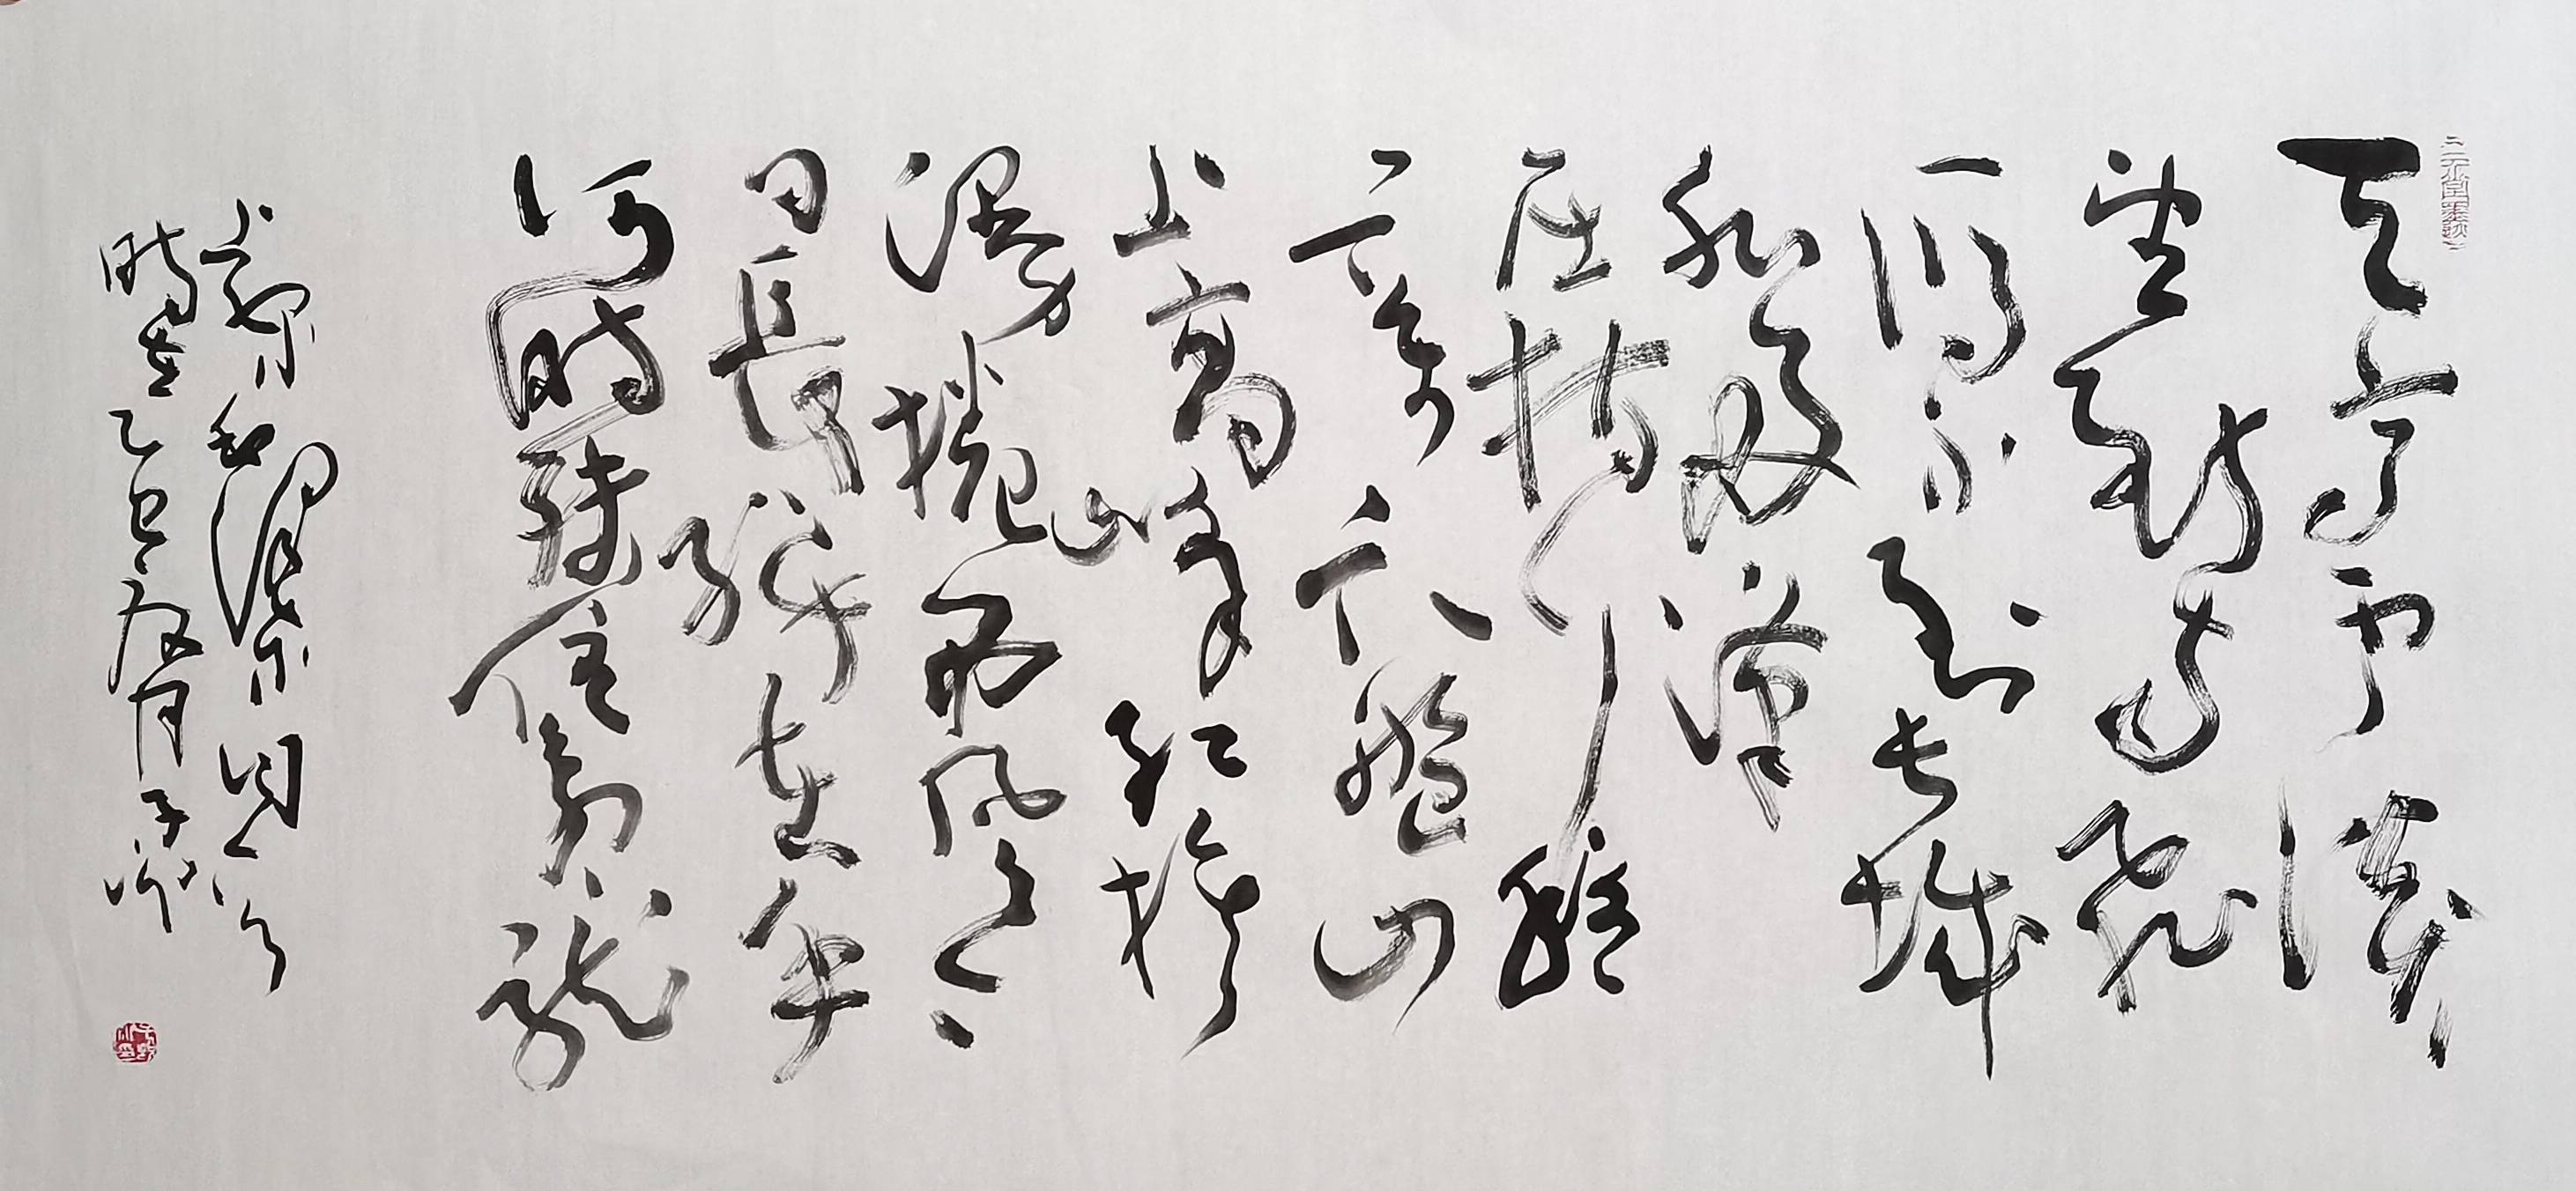 天高云淡
望断南飞
雁不到长城
非好汉
屈指行程
二万六盘山
上高峰红旗
漫捲西风今
日長缨在手
何时缚住苍龙
时在乙巳夏月